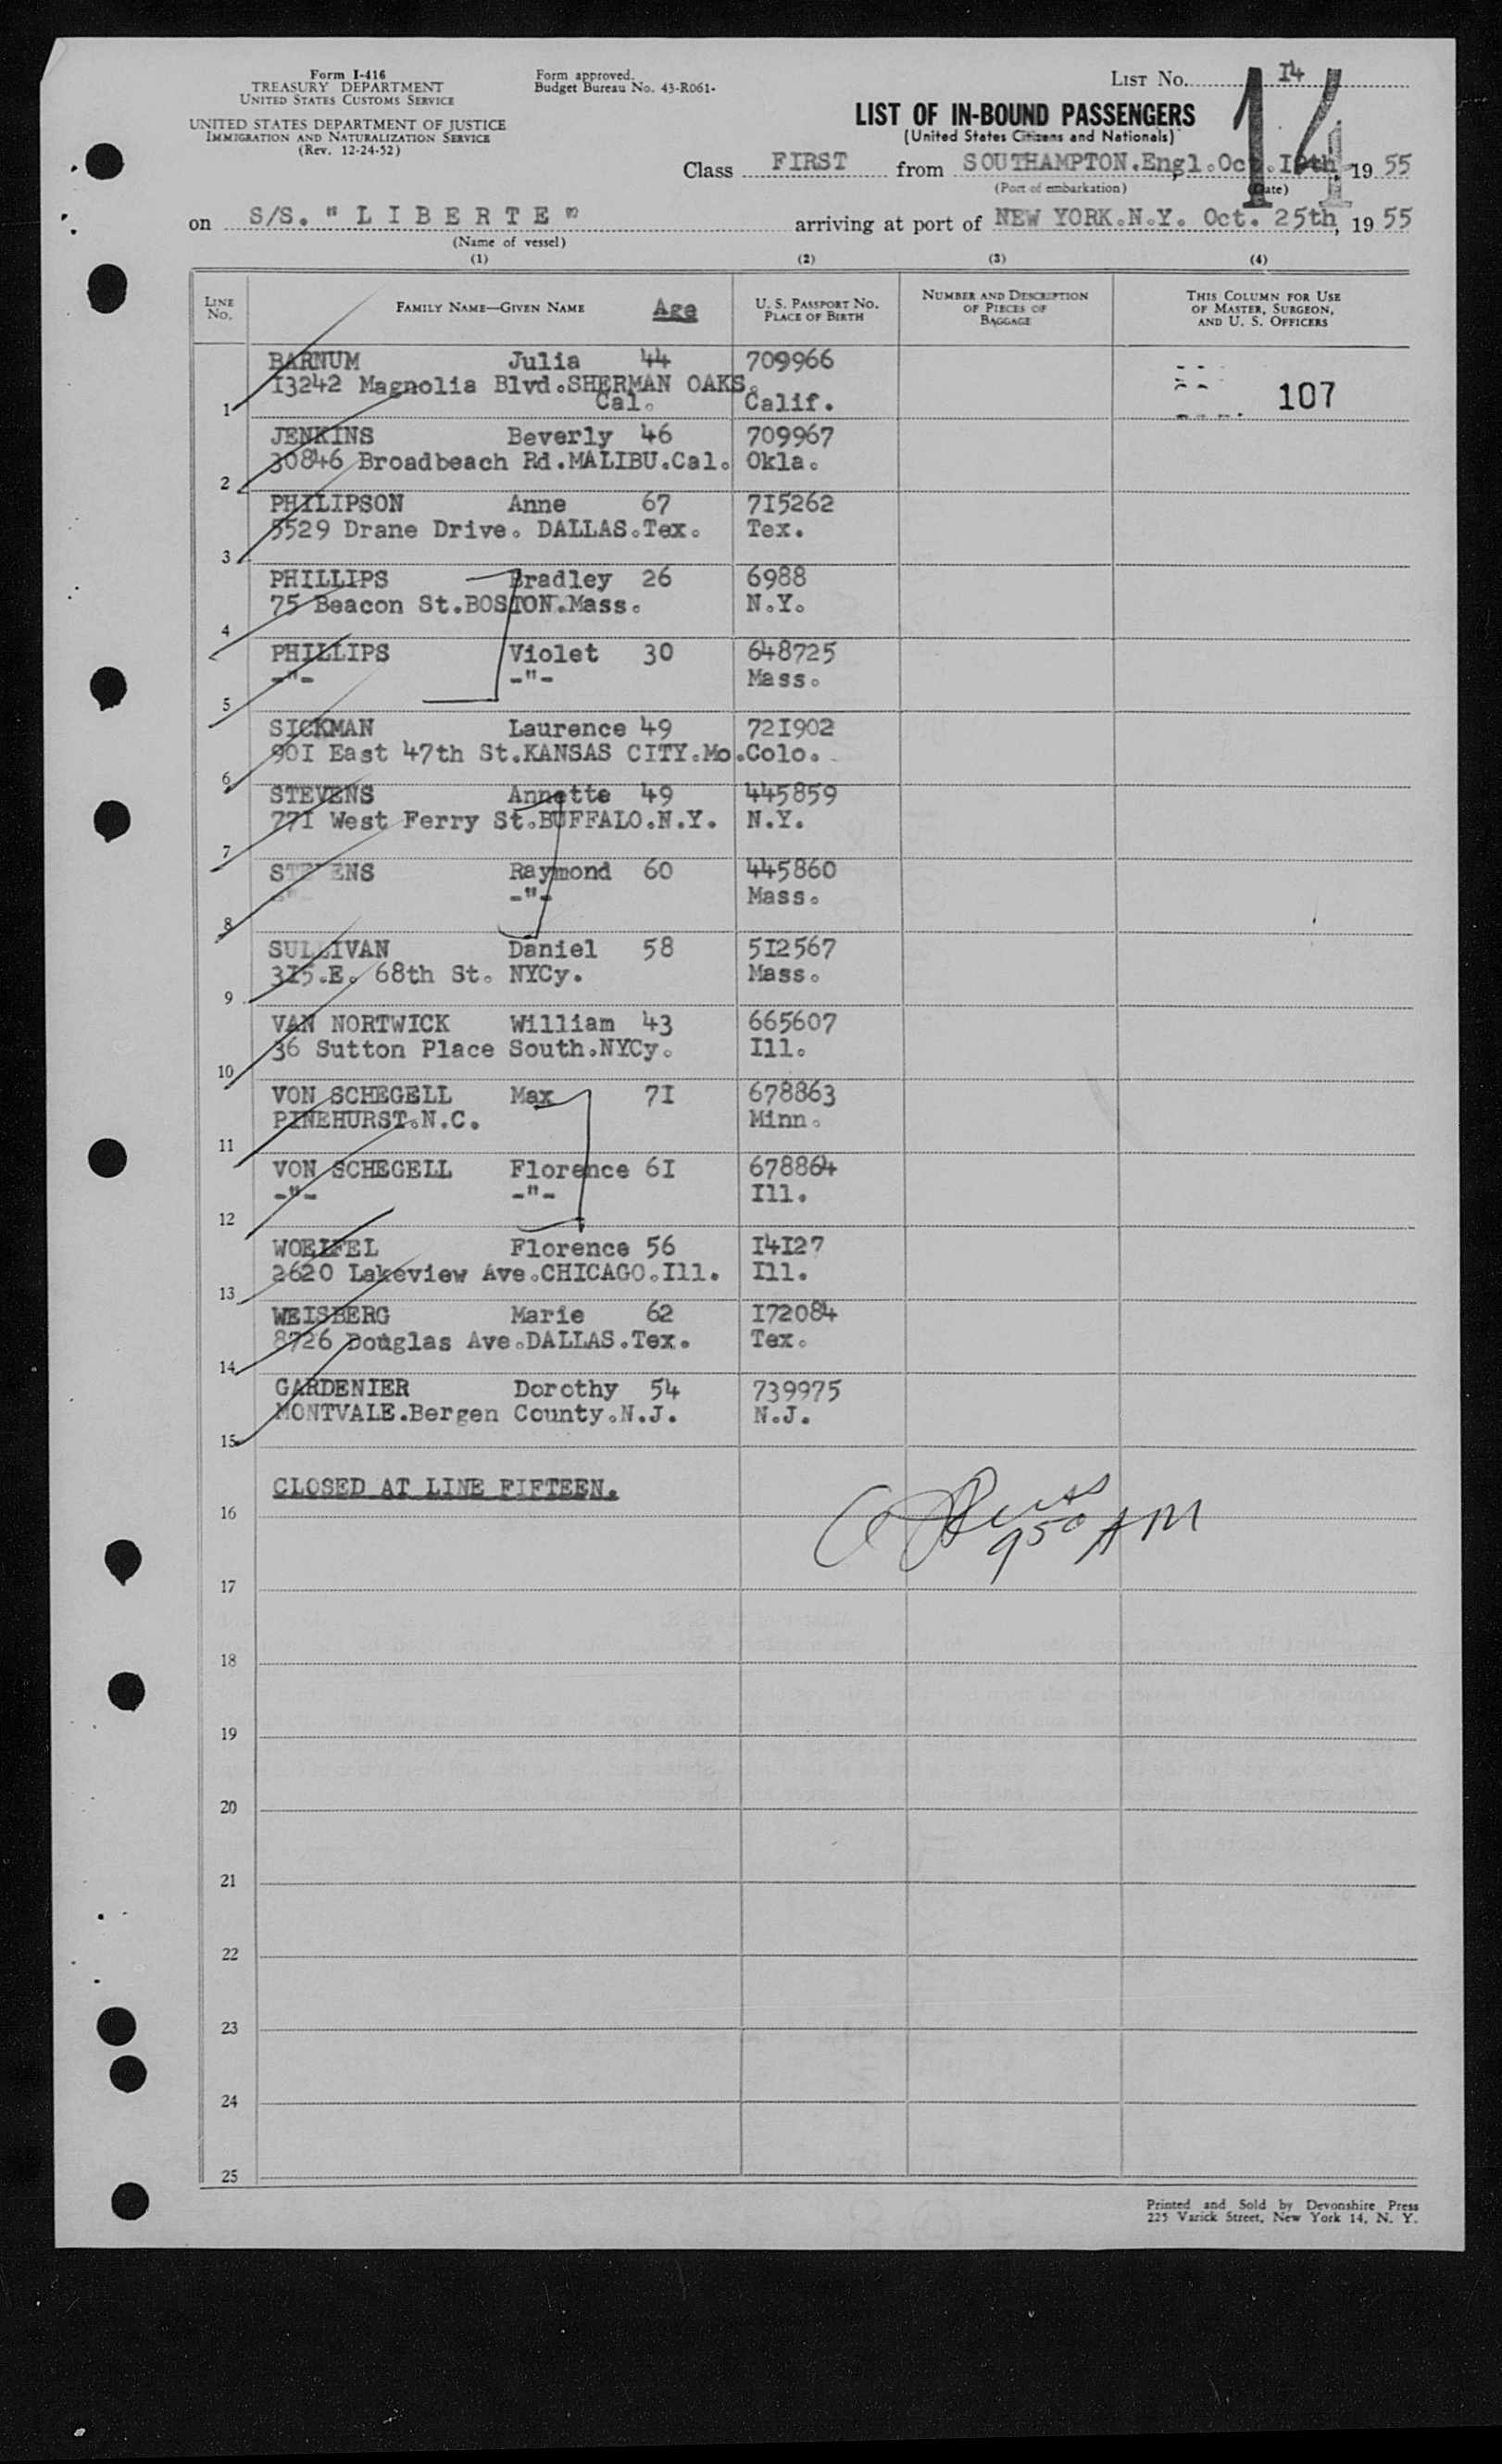 Form I-416
TREASURY DEPARTMENT
UNITED STATES CUSTOMS SERVICE
UNITED STATES DEPARTMENT OF JUSTICE
IMMIGRATION AND NATURALIZATION SERVICE
(Rev. 12-24-52)
Form approved.
Budget Bureau No. 43-R061-
LIST No. I4
14
LIST OF IN-BOUND PASSENGERS
(United States Citizens and Nationals)
Class FIRST from SOUTHAMPTON.Engl.Oct. 1955
(Port of embarkation) (Date)
on S/S. "LIBERTE" arriving at port of NEW YORK.N.Y. Oct. 25th, 1955
(Name of vessel)
(1) (2) (3) (4)
LINE No. FAMILY NAME—GIVEN NAME Age U. S. PASSPORT No. PLACE OF BIRTH NUMBER AND DESCRIPTION OF PIECES OF BAGGAGE THIS COLUMN FOR USE OF MASTER, SURGEON, AND U. S. OFFICERS
BARNUM Julia 44 709966
13242 Magnolia Blvd.SHERMAN OAKS.
Cal. Calif. 107
1
JENKINS Beverly 46 709967
30846 Broadbeach Rd.MALIBU.Cal. Okla.
2
PHILIPSON Anne 67 7I5262
5529 Drane Drive. DALLAS.Tex. Tex.
3
PHILLIPS Bradley 26 6988
75 Beacon St.BOSTON.Mass. N.Y.
4
PHILLIPS Violet 30 648725
-"- -"- Mass.
5
SICKMAN Laurence 49 72I902
90I East 47th St.KANSAS CITY.Mo. Colo.
6
STEVENS Annette 49 445859
77I West Ferry St.BUFFALO.N.Y. N.Y.
7
STEVENS Raymond 60 445860
-"- -"- Mass.
8
SULLIVAN Daniel 58 5I2567
3I5.E. 68th St. NYCy. Mass.
9
VAN NORTWICK William 43 665607
36 Sutton Place South.NYCy. Ill.
10
VON SCHEGELL Max 7I 678863
PINEHURST.N.C. Minn.
11
VON SCHEGELL Florence 6I 678864
-"- -"- Ill.
12
WOELFEL Florence 56 I4I27
2620 Lakeview Ave.CHICAGO.Ill. Ill.
13
WEISBERG Marie 62 I72084
8726 Douglas Ave.DALLAS.Tex. Tex.
14
GARDENIER Dorothy 54 739975
MONTVALE.Bergen County.N.J. N.J.
15
CLOSED AT LINE FIFTEEN.
16
950 AM
17
18
19
20
21
22
23
24
25
Printed and Sold by Devonshire Press
225 Varick Street, New York 14, N. Y.